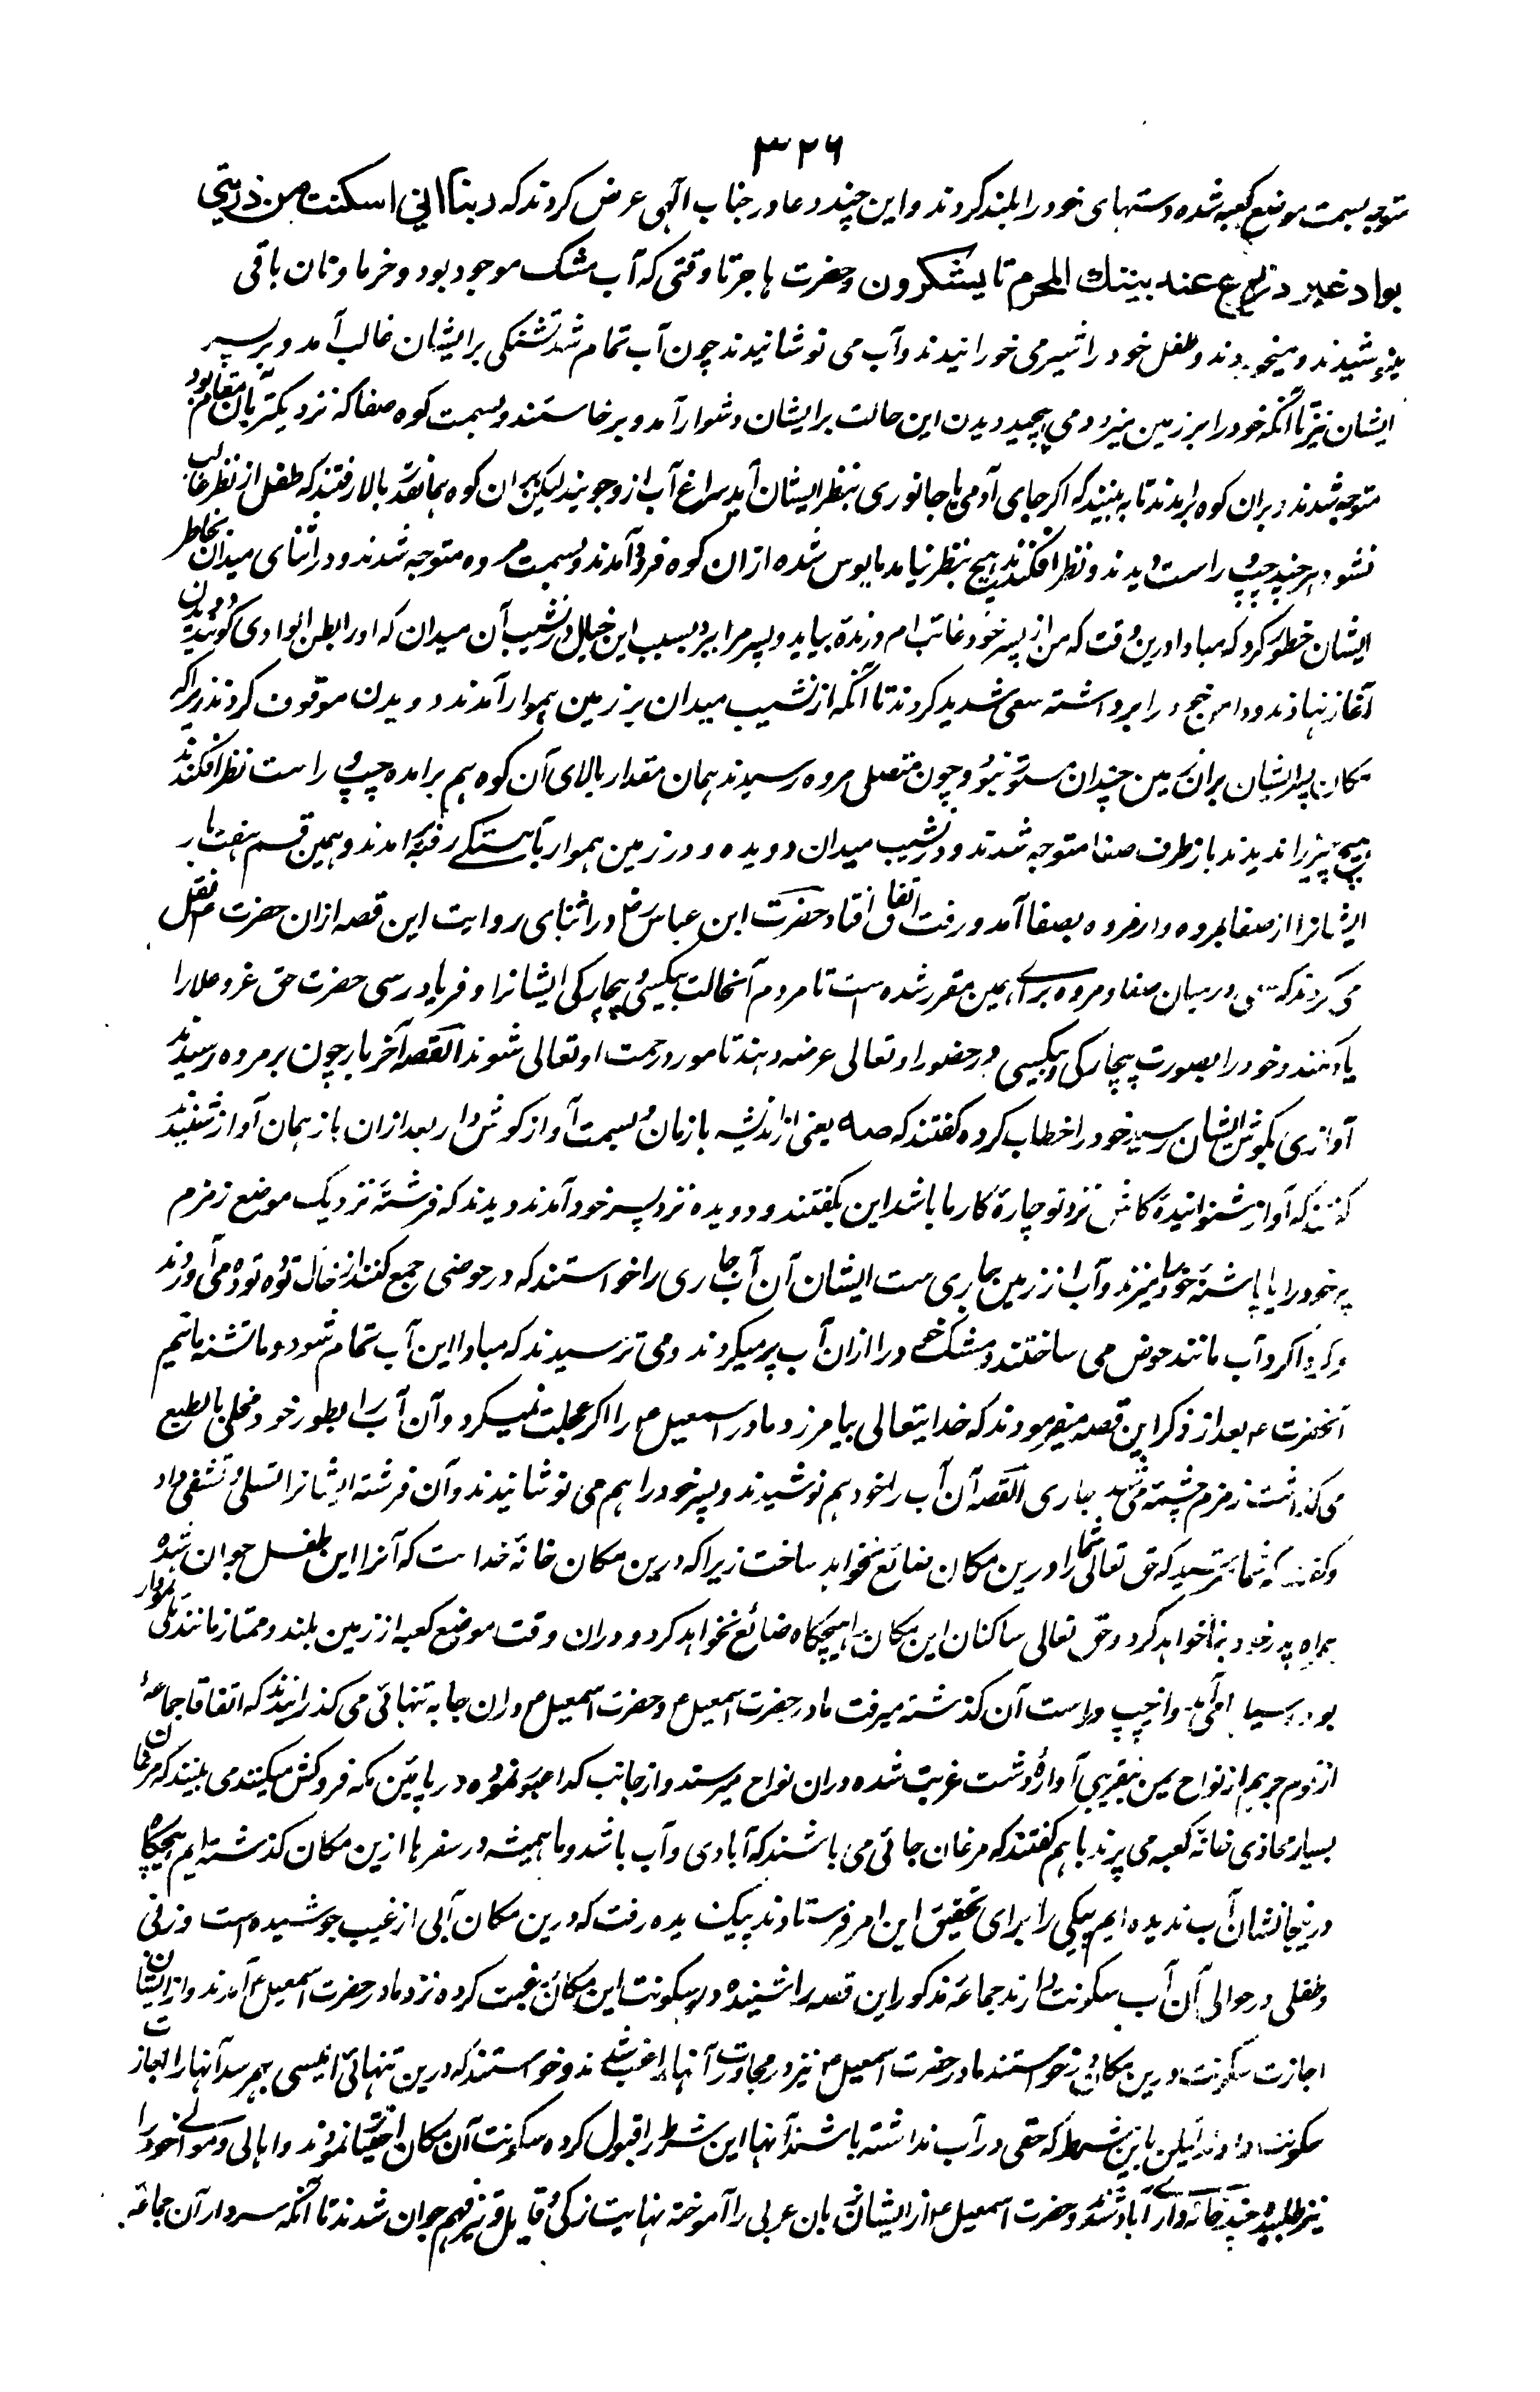 ۳۲۶
متوجه بسمت موضع کعبه شده دستهای خود را بلند کردند و این چند دعا در جناب الهی عرض کردند که ربنا انی اسکنت من ذریتی
بواد غیر ذی زرع عند بیتك المحرم تا یشکرون و حضرت هاجر تا وقتی که آب مشک موجود بود و خرما و نان باقی
مینوشیدند و میخوردند و طفل خود را شیر می خورانیدند و آب می نوشانیدند چون آب تمام شد تشنگی بر ایشان غالب آمد و بر پسر
ایشان نیز تا آنکه خود را بر زمین میزد و می پیچید دیدن این حالت بر ایشان دشوار آمد و برخاستند و بسمت کوه صفا که نزدیکتر بآن مقام بود
متوجه شدند و بران کوه برامدند تا به بینند که اگر جای آدمی یا جانوری بنظر ایشان آید سراغ آب ازو جویند لیکن بران کوه همانقدر بالا رفتند که طفل از نظر غائب
نشود هر چند چپ و راست دیدند و نظر افکندند هیچ بنظر نیامد مایوس شده ازان کوه فرود آمدند و بسمت مروه متوجه شدند و در اثنای میدان بخاطر
ایشان خطور کرد که مبادا درین وقت که من از پسر خود غائب ام درنده بیاید و پسر مرا ببرد بسبب این خیال در نشیب آن میدان که اورا بطن الوادی گویند دویدن
آغاز نهادند و دامن خود را برداشته سعی شدید کردند تا آنکه از نشیب میدان بر زمین هموار آمدند و دویدن موقوف کردند زیراکه
مکان پسر ایشان بران زمین چندان مستور نبود و چون متصل مروه رسیدند همان مقدار بالای آن کوه هم برامده چپ و راست نظر افکندند
هیچ چیز را ندیدند باز طرف صفا متوجه شدند و در نشیب میدان دویده و در زمین هموار بآهستگی رفته برامدند و همین قسم هفت بار
ایشانرا از صفا بمروه و از مروه بصفا آمد و رفت اتفاق افتاد حضرت ابن عباس رض در اثنای روایت این قصه ازان حضرت ص نقل
می کردند که سعی درمیان صفا و مروه برای همین مقرر شده است تا مردم آنحالت بیکسی و بیچارگی ایشانرا و فریاد رسی حضرت حق عز و علا را
یاد کنند و خود را بصورت بیچارگی و بیکسی در حضور او تعالی عرضه دهند تا مورد رحمت او تعالی شوند القصه آخر بار چون بر مروه رسیدند
آوازی بگوش ایشان رسید خود را خطاب کرده گفتند که صه یعنی از اندیشه باز مان و بسمت آواز گوش دار بعد ازان باز همان آواز شنیدند
گفتند که آواز شنوانیدهٔ کاش نزد تو چارهٔ کار ما باشد این بگفتند و دویده نزد پسر خود آمدند دیدند که فرشتهٔ نزدیک موضع زمزم
پر خود را یا پاشنهٔ خود را میزند و آب از زمین جاری ست ایشان آن آب جاری را خواستند که در حوضی جمع کنند از خاک توده توده می آوردند
و گرداگرد آب مانند حوض می ساختند و مشک خود را ازان آب پر میکردند و می ترسیدند که مبادا این آب تمام شود و ما تشنه مانیم
آنحضرت ص بعد از ذکر این قصه میفرمودند که خدایتعالی بیامرزد مادر اسمعیل را اگر عجلت نمیکرد و آن آب را بطور خود مخلی بالطبع
می گذاشت زمزم چشمه می شد جاری القصه آن آب را خود هم نوشیدند و پسر خود را هم می نوشانیدند و آن فرشته ایشانرا تسلی و تشفی داد
و گفت که شما مترسید که حق تعالی شما را درین مکان ضائع نخواهد ساخت زیرا که درین مکان خانهٔ خداست که آنرا این طفل جوان شده
همراه پدر خود بنا خواهد کرد و حق تعالی ساکنان این مکان را هیچگاه ضائع نخواهد کرد و دران وقت موضع کعبه از زمین بلند و ممتاز مانند تلی نمودار
بود سیل می آمد و از چپ و راست آن گذشته میرفت مادر حضرت اسمعیل و حضرت اسمعیل دران جا به تنهائی می گذرانیدند که اتفاقا جماعهٔ
از قوم جرهم از نواح یمن بتقریبی آوارهٔ دشت غربت شده دران نواح میرسند و از جانب کدا عبور نموده در پائین مکه فروکش میکنند می بینند که مرغان
بسیار محاذی خانهٔ کعبه می پرند باهم گفتند که مرغان جائی می باشند که آبادی و آب باشد و ما همیشه در سفرها ازین مکان گذشته ایم هیچگاه
درینجا نشان آب ندیده ایم پیکی را برای تحقیق این امر فرستادند پیک دیده رفت که درین مکان آبی از غیب جوشیده است و زنی
و طفلی در حوالی آن آب سکونت دارند جماعهٔ مذکور این قصه را شنیده در سکونت این مکان رغبت کرده نزد مادر حضرت اسمعیل آمدند و از ایشان
اجازت سکونت درین مکان درخواستند مادر حضرت اسمعیل نیز در مجاورت آنها راغب شدند و خواستند که درین تنهائی انیسی بهم رسد آنها را اجازت
سکونت دادند لیکن باین شرط که حقی در آب نداشته باشند آنها این شرط را قبول کرده سکونت آن مکان اختیار نمودند و اهالی و موالی خود را
نیز طلبیده چند خانه وار آباد شدند و حضرت اسمعیل از ایشان زبان عربی را آموخته نهایت زکی و قابل و تیز فهم جوان شدند تا آنکه سردار آن جماعه